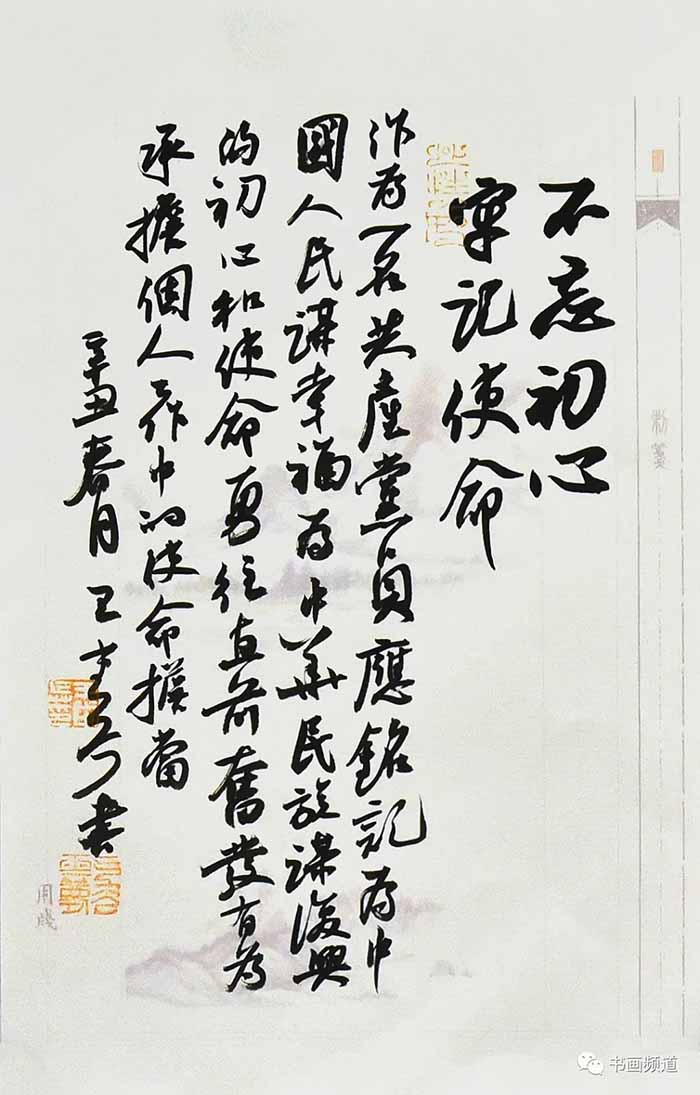 不忘初心
牢記使命
作為一名共產黨員應銘記為中
國人民謀幸福為中華民族謀復興
的初心和使命勇往直前奮發有為
承擔個人工作中的使命擔當
辛丑春月 王 書
用牋
书画频道